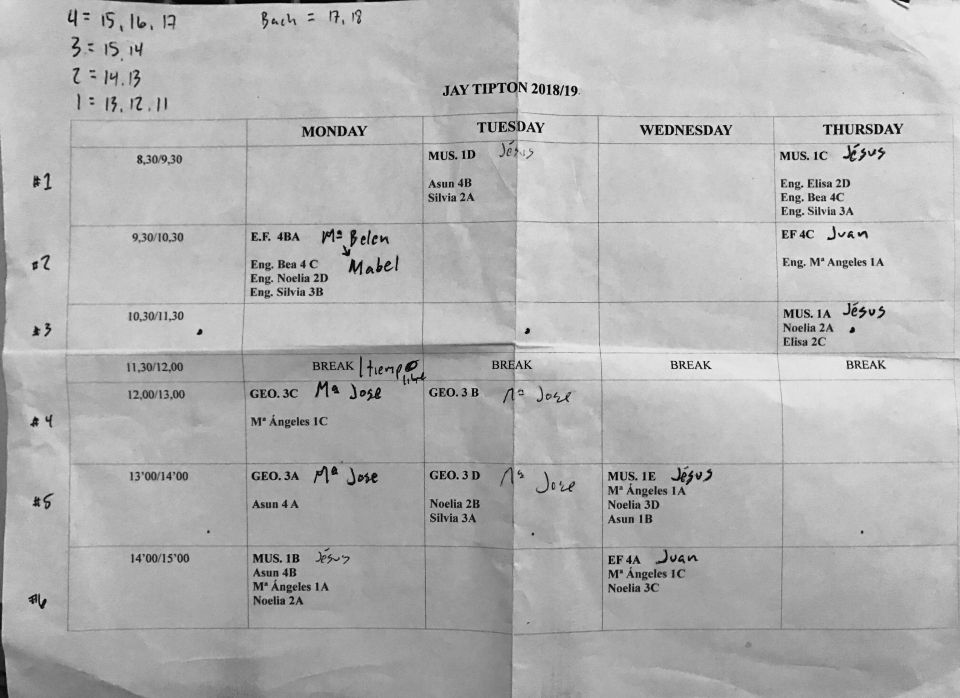 4 = 15, 16, 17
Bach = 17, 18
3 = 15, 14
2 = 14, 13
1 = 13, 12, 11
JAY TIPTON 2018/19
MONDAY
TUESDAY
WEDNESDAY
THURSDAY
#1
8,30/9,30
MUS. 1D Jésus
Asun 4B
Silvia 2A
MUS. 1C Jésus
Eng. Elisa 2D
Eng. Bea 4C
Eng. Silvia 3A
#2
9,30/10,30
E.F. 4BA Mª Belen
Mabel
Eng. Bea 4 C
Eng. Noelia 2D
Eng. Silvia 3B
EF 4C Juan
Eng. Mª Angeles 1A
#3
10,30/11,30
MUS. 1A Jésus
Noelia 2A
Elisa 2C
11,30/12,00
BREAK / tiempo libre
BREAK
BREAK
BREAK
#4
12,00/13,00
GEO. 3C Mª Jose
Mª Ángeles 1C
GEO. 3 B Mª Jose
#5
13'00/14'00
GEO. 3A Mª Jose
Asun 4 A
GEO. 3 D Mª Jose
Noelia 2B
Silvia 3A
MUS. 1E Jésus
Mª Ángeles 1A
Noelia 3D
Asun 1B
#6
14'00/15'00
MUS. 1B Jésus
Asun 4B
Mª Ángeles 1A
Noelia 2A
EF 4A Juan
Mª Ángeles 1C
Noelia 3C